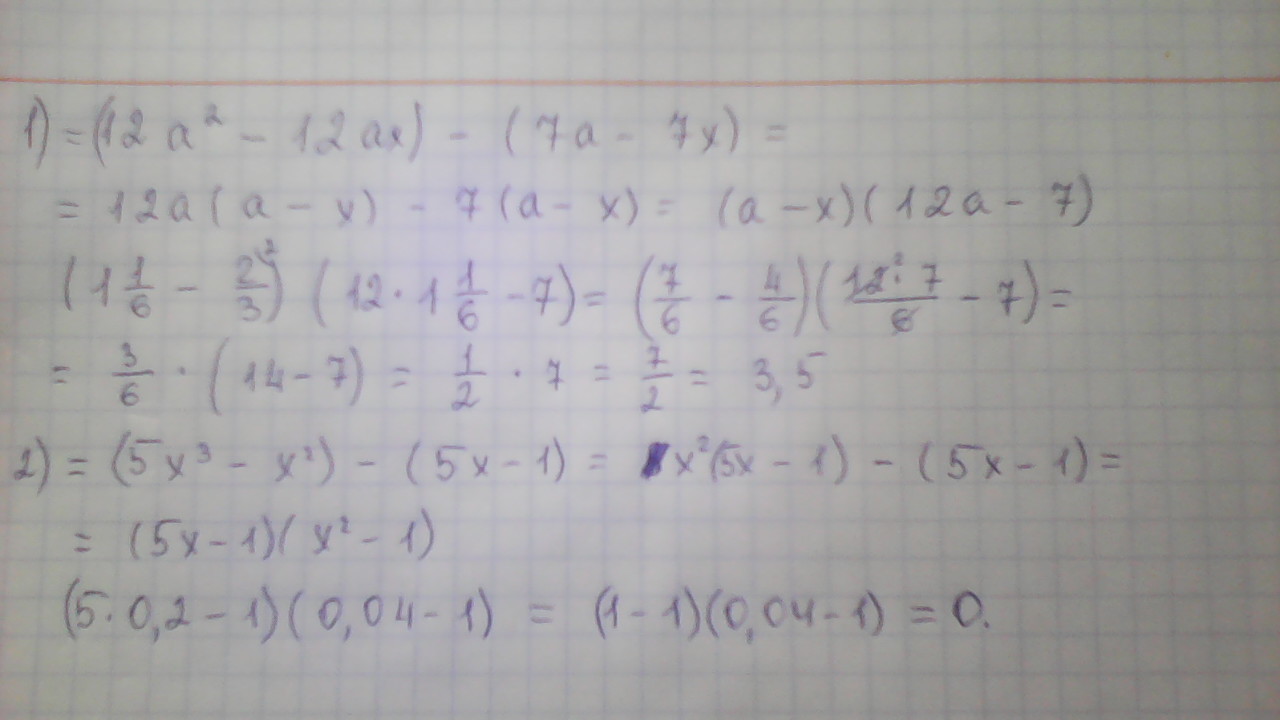 1) = (12a² - 12ax) - (7a - 7x) =
= 12a(a - x) - 7(a - x) = (a - x)(12a - 7)
(1 1/6 - 2/3²) (12 · 1 1/6 - 7) = (7/6 - 4/6)(12² · 7/6 - 7) =
= 3/6 · (14 - 7) = 1/2 · 7 = 7/2 = 3,5
2) = (5x³ - x²) - (5x - 1) = x²(5x - 1) - (5x - 1) =
= (5x - 1)(x² - 1)
(5·0,2 - 1)(0,04 - 1) = (1 - 1)(0,04 - 1) = 0.